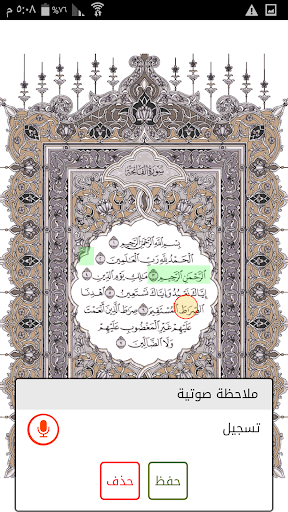 ٧٦٪ ٥:٠٨ م
سورة الفاتحة
بسم الله الرحمن الرحيم ١
الحمد لله رب العالمين ٢
الرحمن الرحيم ٣ ملك يوم الدين ٤
إياك نعبد وإياك نستعين ٥ اهدنا
الصراط المستقيم ٦ صراط الذين أنعمت
عليهم غير المغضوب عليهم
ولا الضالين ٧
ملاحظة صوتية
تسجيل
حفظ
حذف